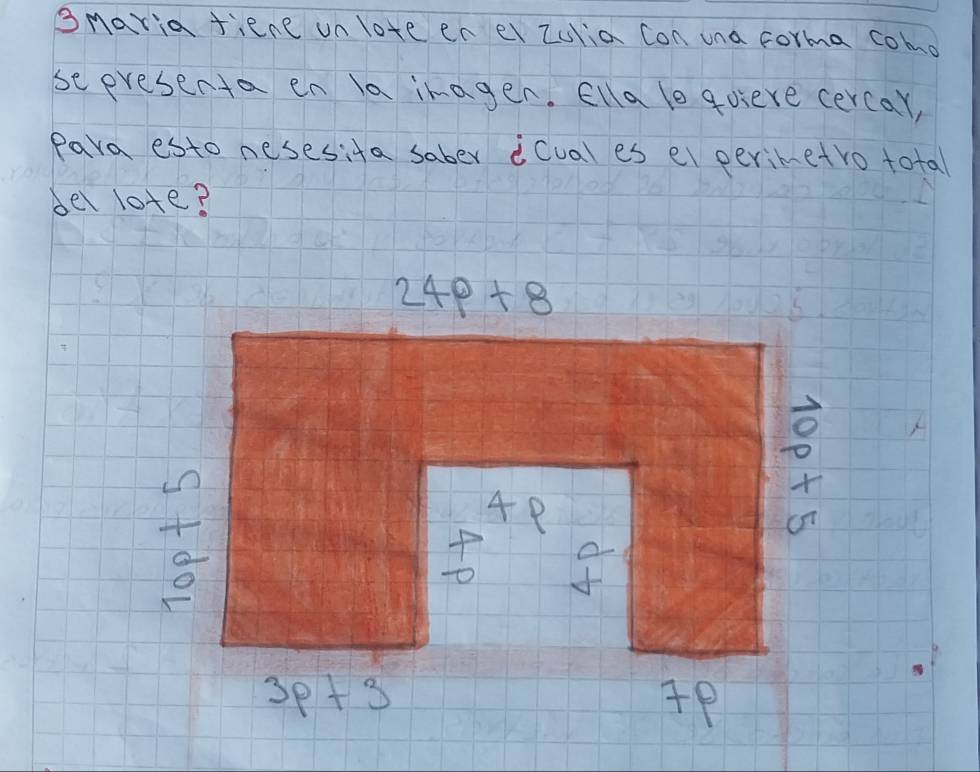 3 Maria tiene un lote en el zulia con una forma como
se presenta en la imagen. Ella lo quiere cercar,
para esto nesesita saber ¿cual es el perimetro total
del lote?
24p + 8
10p + 5
10p + 5
4p
4p
4p
3p + 3
7p